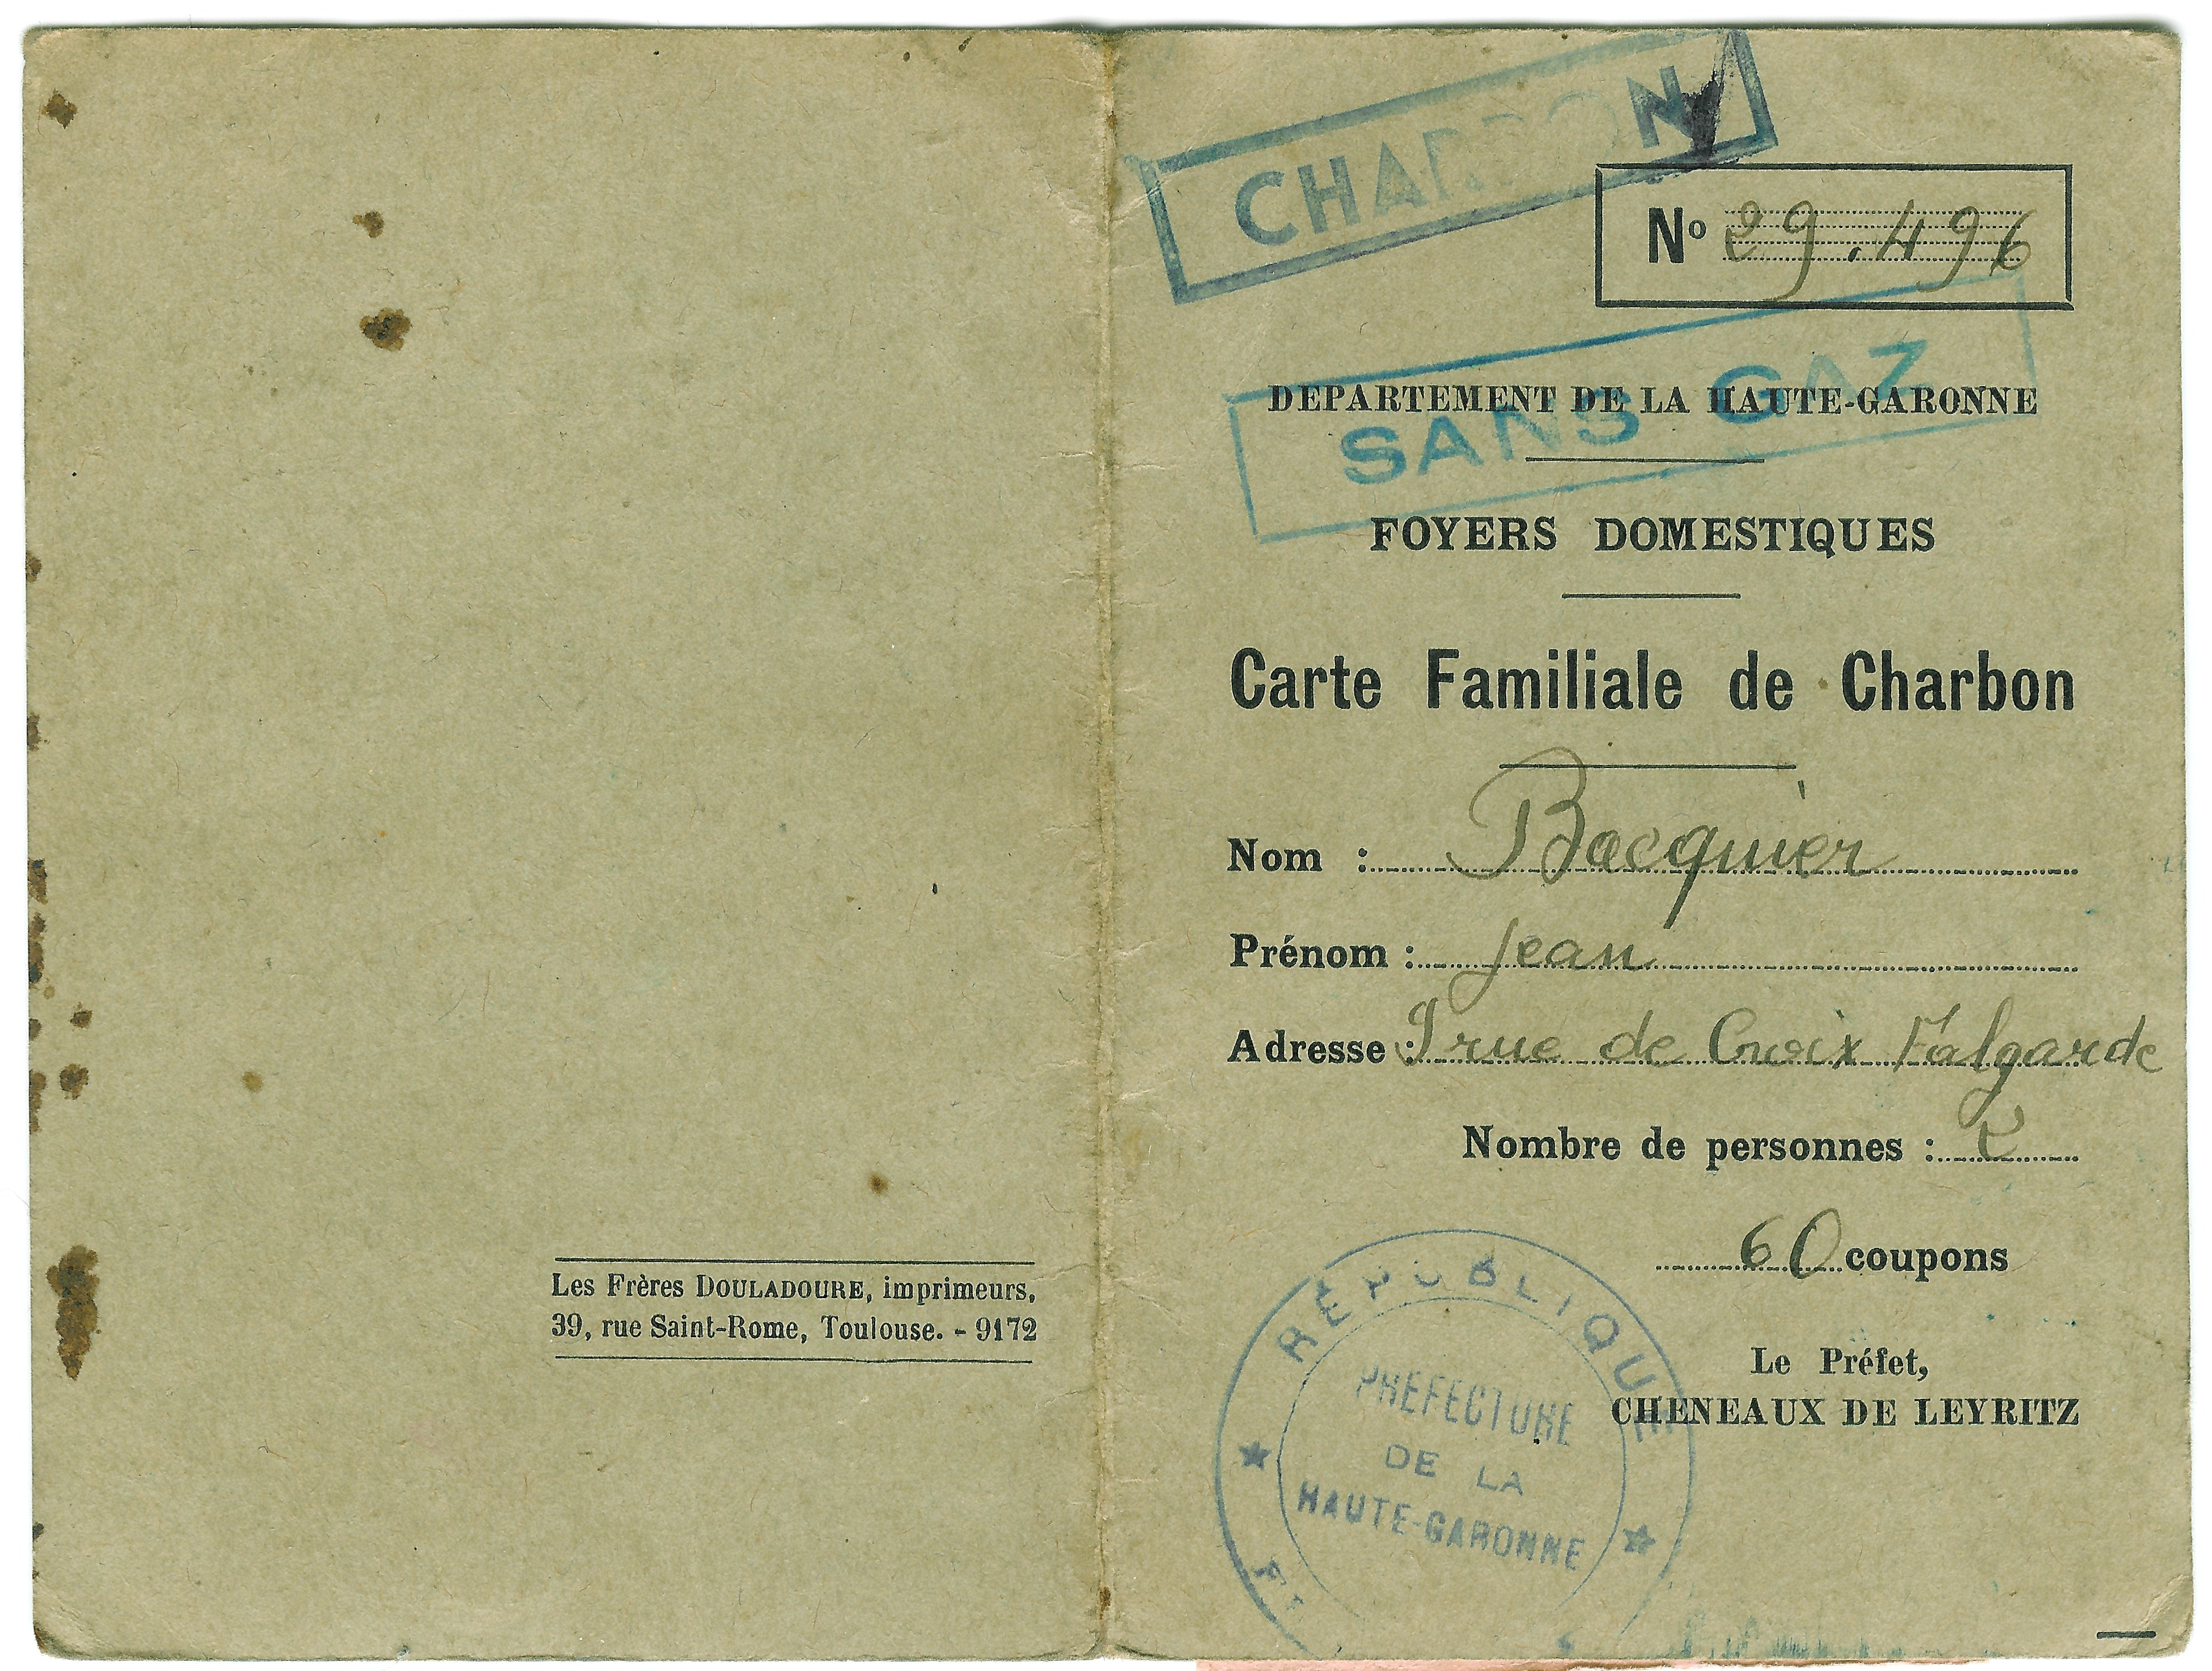 Les Frères DOULADOURE, imprimeurs,
39, rue Saint-Rome, Toulouse. - 9172
CHARBON
Nº 29.496
SANS GAZ
DEPARTEMENT DE LA HAUTE-GARONNE
FOYERS DOMESTIQUES
Carte Familiale de Charbon
Nom : Bacquier
Prénom : Jean
Adresse : 9 rue de Croix Falgarde
Nombre de personnes : 2
60 coupons
Le Préfet,
CHENEAUX DE LEYRITZ
RÉPUBLIQUE
PREFECTURE
DE LA
HAUTE-GARONNE